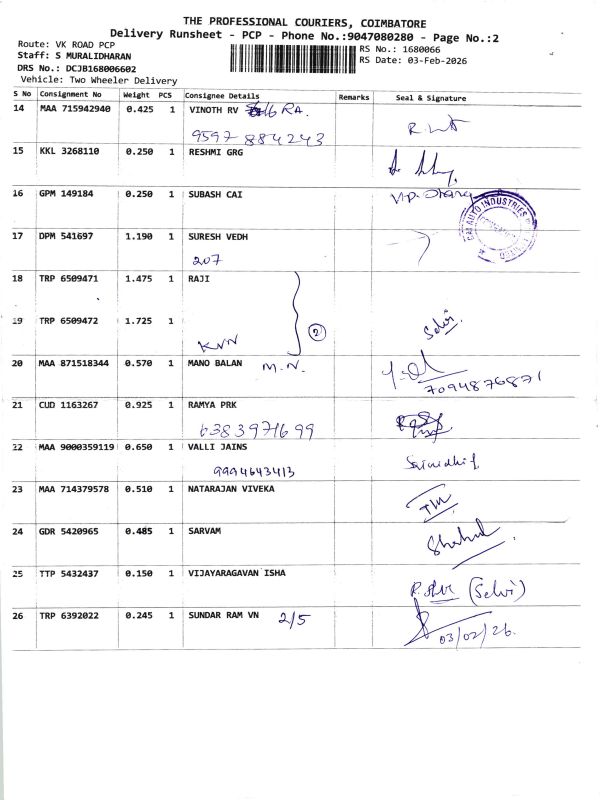 THE PROFESSIONAL COURIERS, COIMBATORE
Delivery Runsheet - PCP - Phone No.:9047080280 - Page No.:2
Route: VK ROAD PCP
Staff: S MURALIDHARAN
DRS No.: DCJB168006602
Vehicle: Two Wheeler Delivery
RS No.: 1680066
RS Date: 03-Feb-2026
S No Consignment No Weight PCS Consignee Details Remarks Seal & Signature
14 MAA 715942940 0.425 1 VINOTH RV RA.
9597 884243
15 KKL 3268110 0.250 1 RESHMI GRG
16 GPM 149184 0.250 1 SUBASH CAI
17 DPM 541697 1.190 1 SURESH VEDH
207
18 TRP 6509471 1.475 1 RAJI
19 TRP 6509472 1.725 1
KNN
2
Selvi.
20 MAA 871518344 0.570 1 MANO BALAN M.N.
7094876871
21 CUD 1163267 0.925 1 RAMYA PRK
6383971699
22 MAA 9000359119 0.650 1 VALLI JAINS
9994643413
23 MAA 714379578 0.510 1 NATARAJAN VIVEKA
24 GDR 5420965 0.485 1 SARVAM
25 TTP 5432437 0.150 1 VIJAYARAGAVAN ISHA
(Selvi)
26 TRP 6392022 0.245 1 SUNDAR RAM VN 2/5
03/02/26.